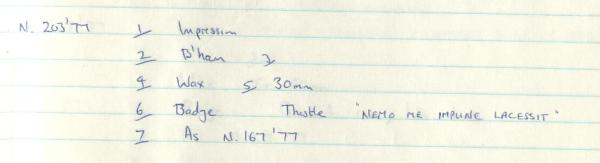 N. 203'77 1 Impression
2 B'ham 3
4 Wax 5 30mm
6 Badge Thistle "NEMO ME IMPUNE LACESSIT"
7 As N.167'77